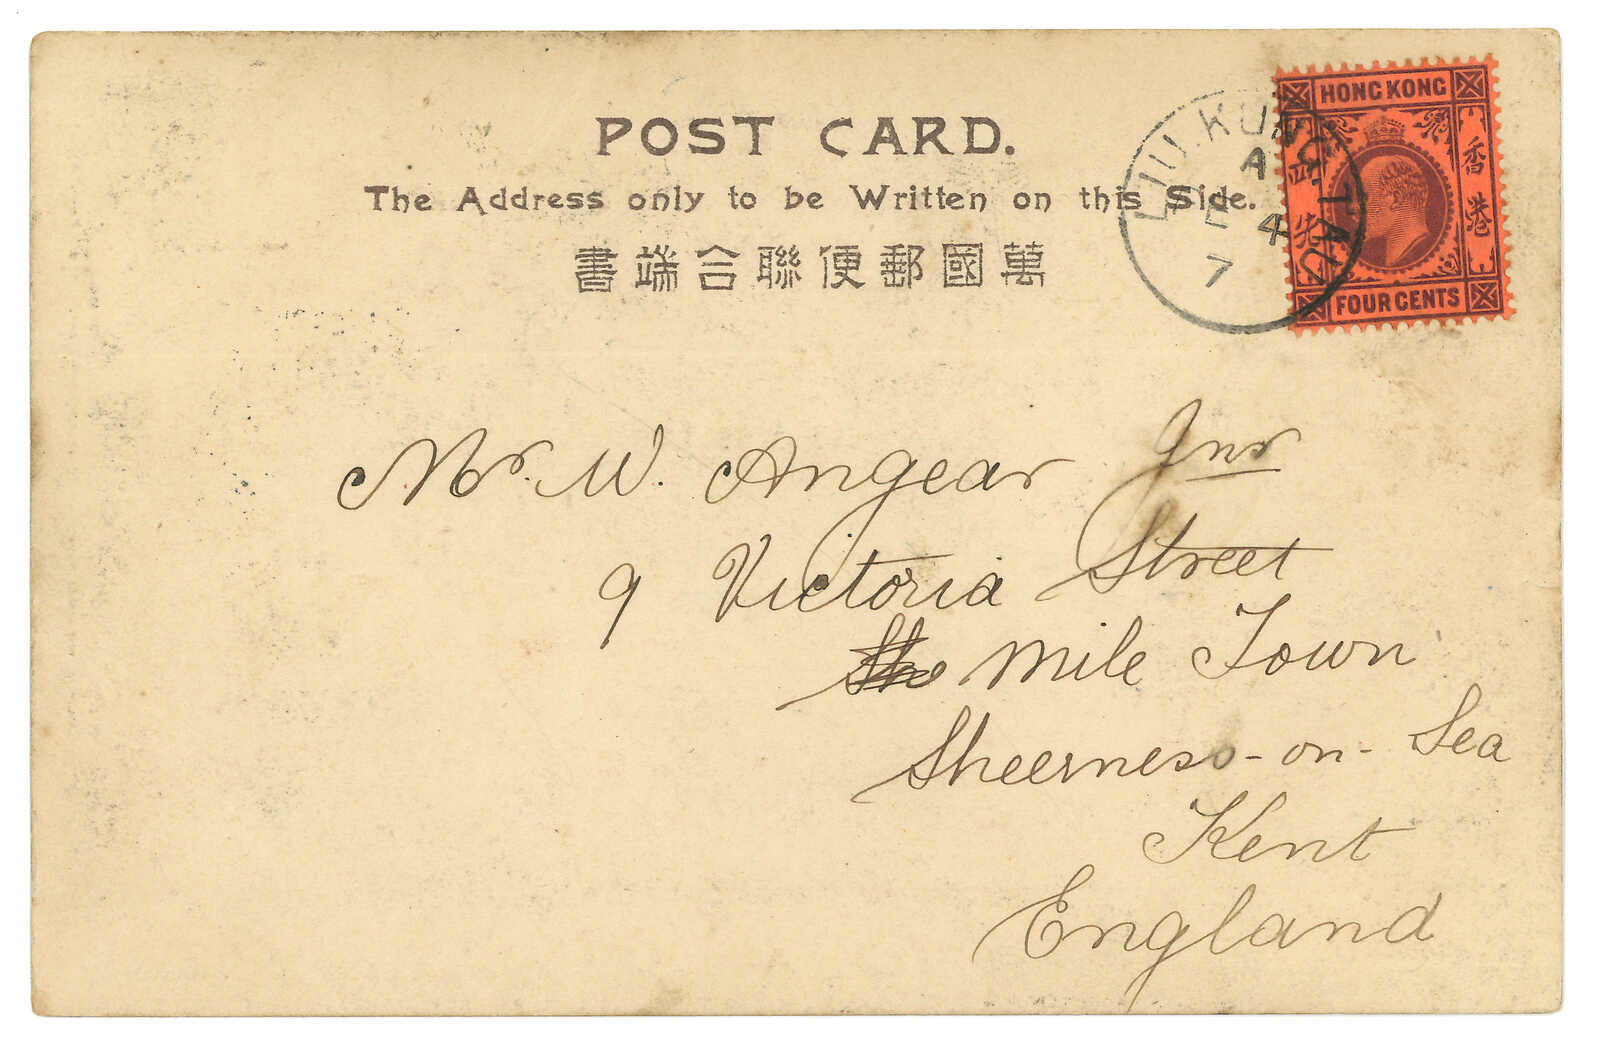 POST CARD.
The Address only to be Written on this Side.
書端合聯便郵國萬
HONG KONG
香港
四先
FOUR CENTS
LIU.KUNG.TAU
A
4
7
Mr. W. Angear Jnr
9 Victoria Street
Mile Town
Sheerness-on-Sea
Kent
England